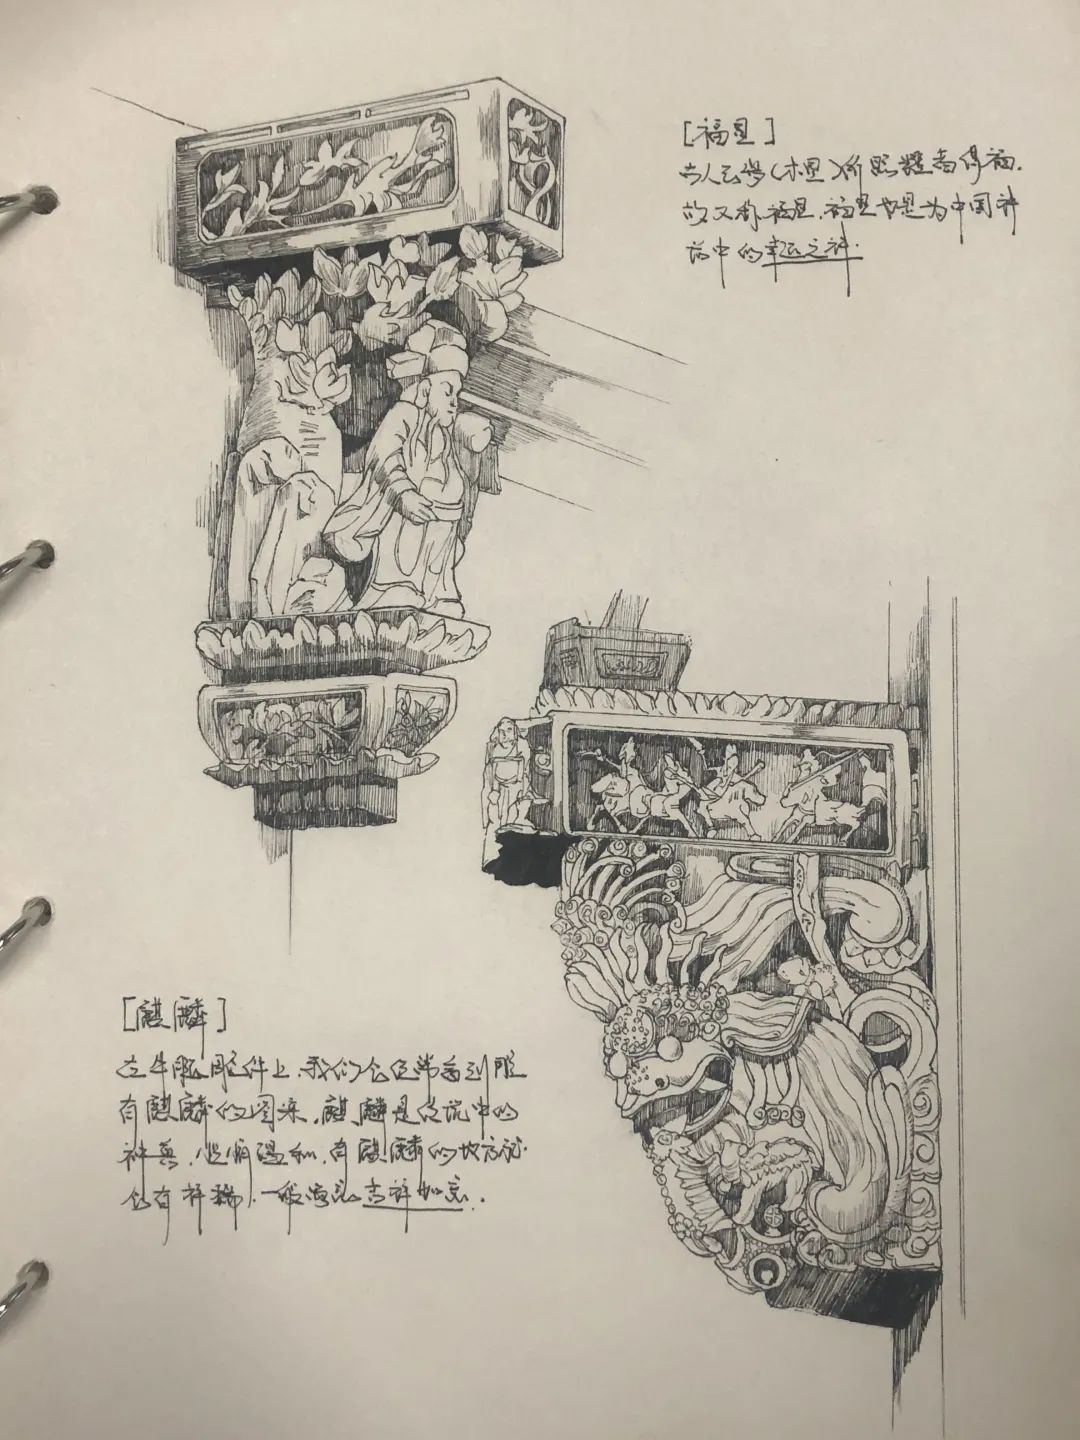 [福星]
古人云岁(木星)所照耀者得福.
故又称福星.福星也是为中国神
话中的幸运之神.
[麒麟]
在牛腿部件上,我们会经常看到雕
有麒麟的图案.麒麟是传说中的
神兽,性情温和,有麒麟的地方就
会有祥瑞,一般寓意吉祥如意.